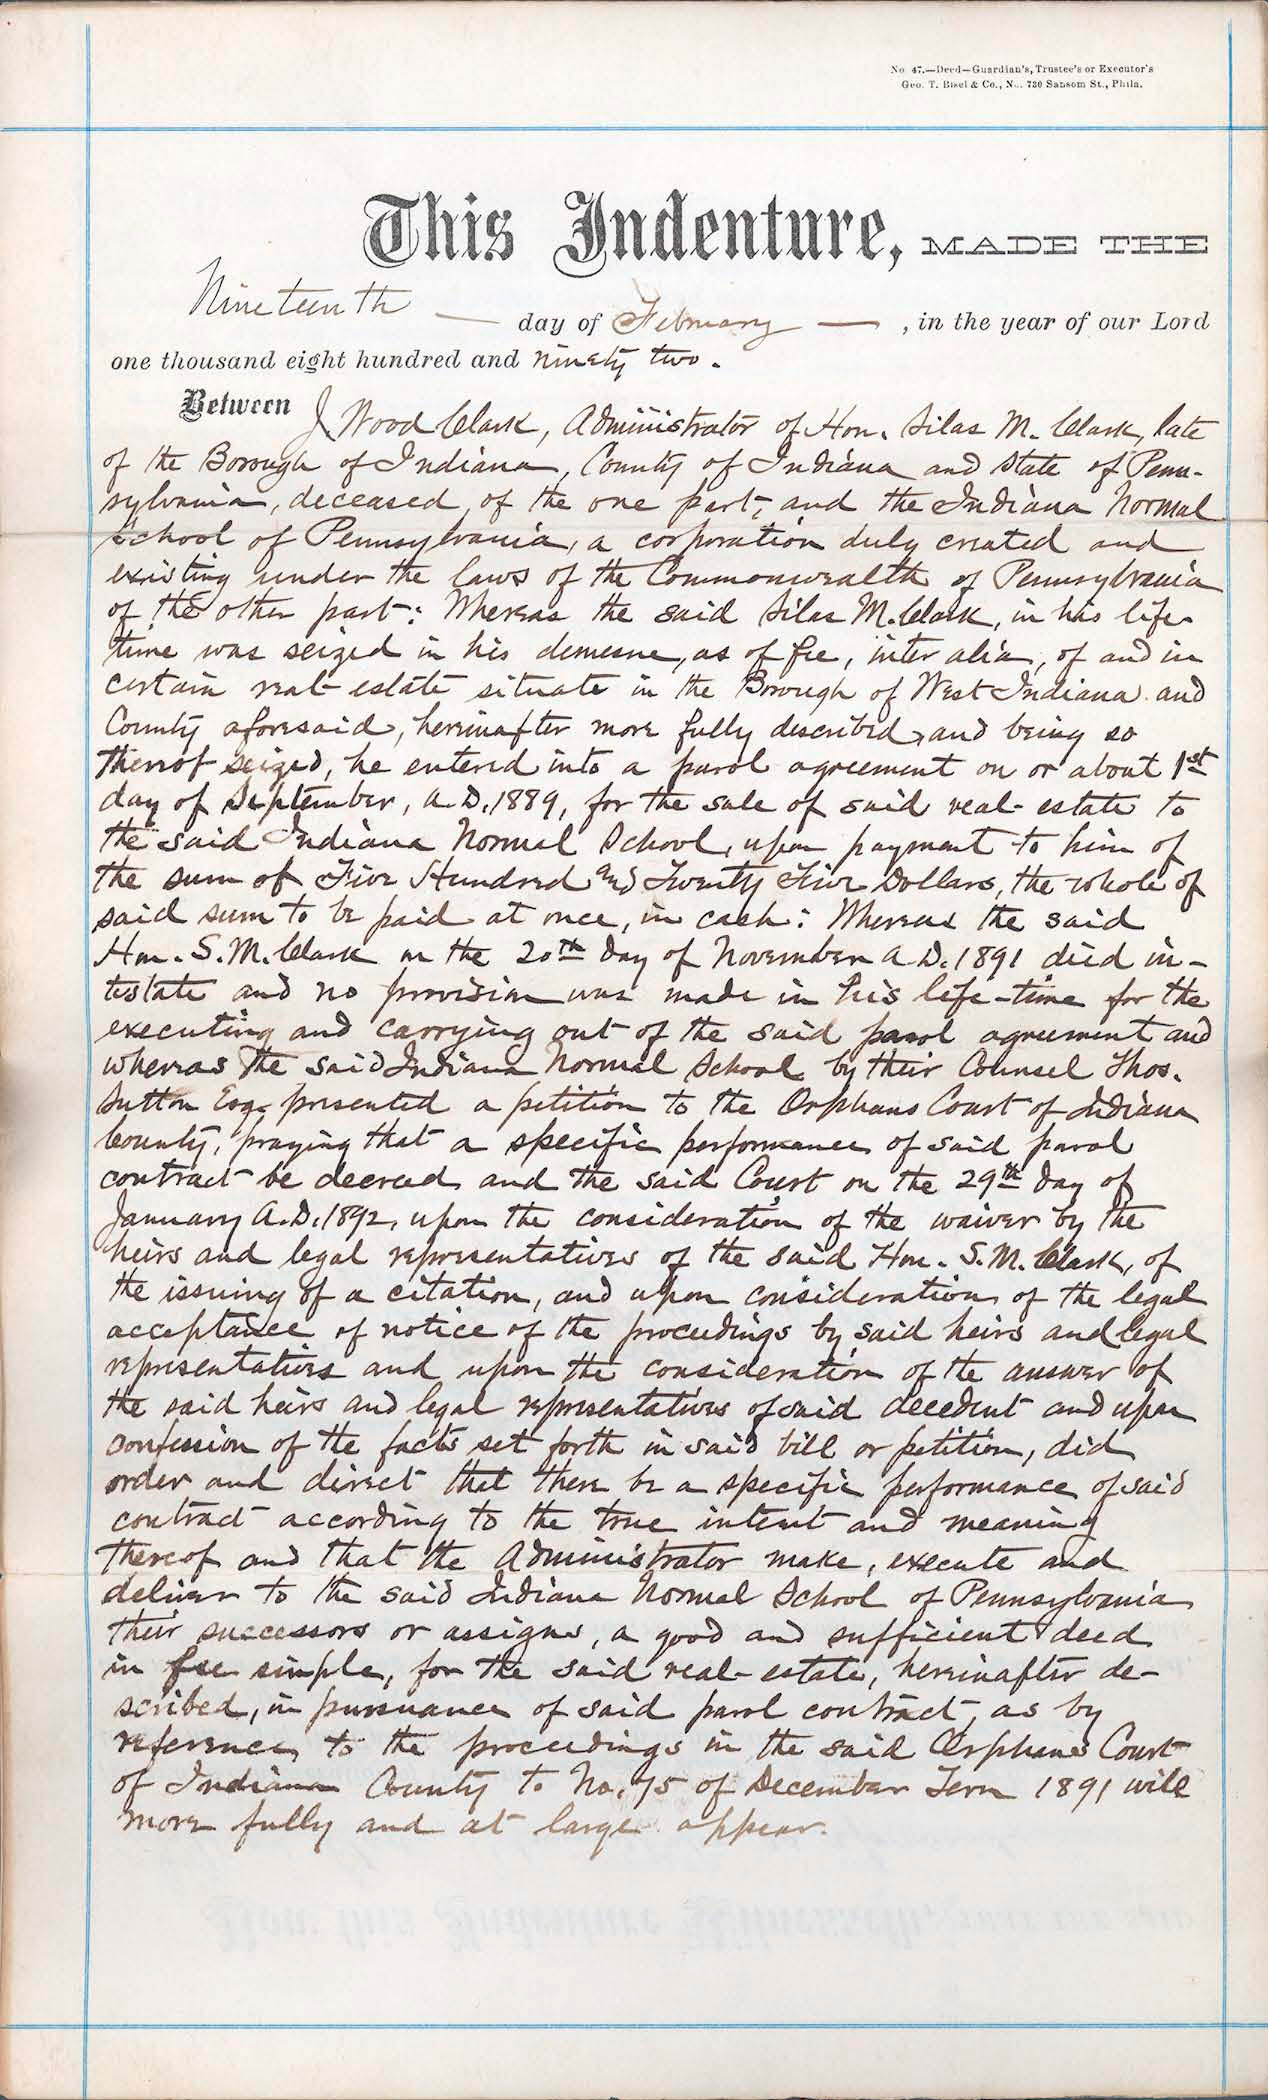 No. 47.—Deed—Guardian's, Trustee's or Executor's
Geo. T. Bisel & Co., No. 730 Sansom St., Phila.
This Indenture, MADE THE
Nineteenth — day of February —, in the year of our Lord
one thousand eight hundred and ninety two.
Between J Wood Clark, Administrator of Hon. Silas M. Clark, late
of the Borough of Indiana, County of Indiana and State of Penn-
sylvania, deceased, of the one part, and the Indiana Normal
School of Pennsylvania, a corporation duly created and
existing under the laws of the Commonwealth of Pennsylvania
of the other part: Whereas the said Silas M. Clark, in his life-
time was seized in his demesne, as of fee, inter alia, of and in
certain real estate situate in the Borough of West Indiana and
County aforesaid, hereinafter more fully described, and being so
thereof seized, he entered into a parol agreement on or about 1st
day of September, A.D. 1889, for the sale of said real-estate to
the said Indiana Normal School, upon payment to him of
the sum of Five Hundred and Twenty Five Dollars, the whole of
said sum to be paid at once, in cash: Whereas the said
Hon. S. M. Clark on the 20th day of November A.D. 1891 died in-
testate and no provision was made in his life-time for the
executing and carrying out of the said parol agreement and
whereas the said Indiana Normal School by their Counsel Thos.
Sutton Esq. presented a petition to the Orphans Court of Indiana
County, praying that a specific performance of said parol
contract be decreed and the said Court on the 29th day of
January A.D. 1892, upon the consideration of the waiver by the
heirs and legal representatives of the said Hon. S. M. Clark, of
the issuing of a citation, and upon consideration of the legal
acceptance of notice of the proceedings by said heirs and legal
representatives and upon the consideration of the answer of
the said heirs and legal representatives of said decedent and upon
confession of the facts set forth in said bill or petition, did
order and direct that there be a specific performance of said
contract according to the true intent and meaning
thereof and that the Administrator make, execute and
deliver to the said Indiana Normal School of Pennsylvania
their successors or assigns, a good and sufficient deed
in fee simple, for the said real-estate, hereinafter de-
scribed, in pursuance of said parol contract, as by
reference to the proceedings in the said Orphans Court
of Indiana County to No. 75 of December Term 1891 will
more fully and at large appear.